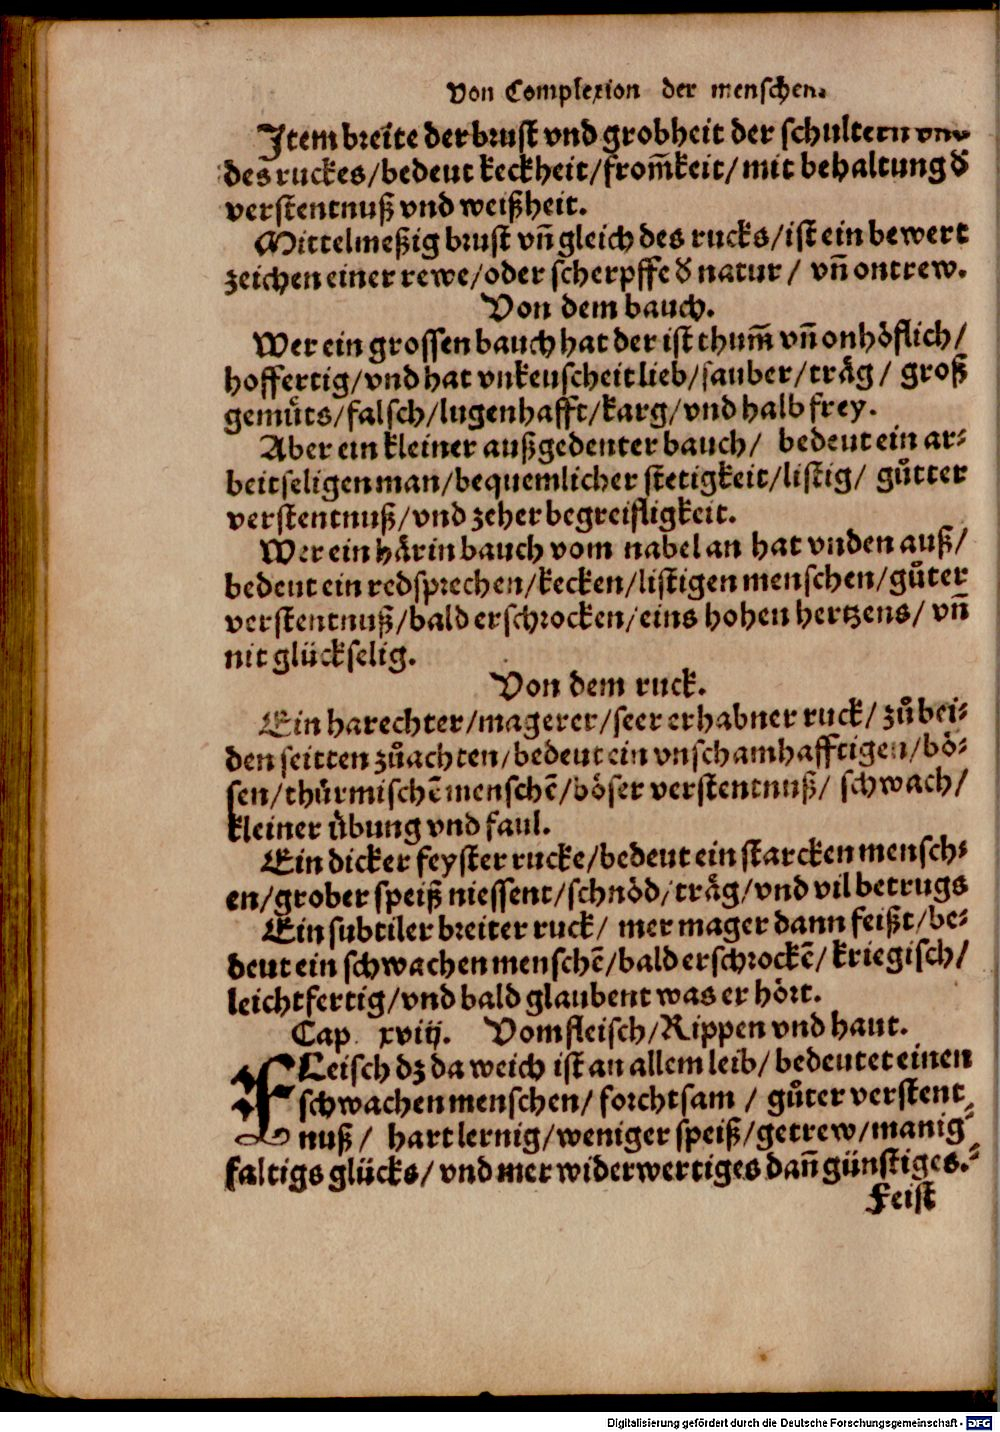 Von Complexion der menschen.
Item breite der brust vnd grobheit der schultern vnd
des ruckes/bedeut keckheit/from̄keit/ mit behaltung d̕
verstentnuß vnd weißheit.
Mittelmeßig brust vn̄ gleich des rucks/ist ein bewert
zeichen einer rewe/oder scherpffe d̕ natur/ vn̄ ontrew.
Von dem bauch.
Wer ein grossen bauch hat der ist thum̄ vn̄ onhöflich/
hoffertig/vnd hat vnkeuscheit lieb/sauber/träg/ groß
gemuͤts/falsch/lugenhafft/karg/vnd halb frey.
Aber ein kleiner außgedenter bauch/ bedeut ein ar⸗
beitseligen man/bequemlicher stetigkeit/listig/ guͦtter
verstentnuß/vnd zeher begreifligkeit.
Wer ein härin bauch vom nabel an hat vnden auß/
bedeut ein redsprechen/kecken/listigen menschen/guͦter
verstentnuß/bald erschrocken/eins hohen hertzens/ vn̄
nit glückselig.
Von dem ruck.
Ein harechter/magerer/seer erhabner ruck/ zuͦ bei⸗
den seitten zuͦachten/bedeut ein vnschamhafftigen/bö⸗
sen/thürmischē menschē/böser verstentnuß/ schwach/
kleiner übung vnd faul.
Ein dicker feyster rucke/bedeut ein starcken mensch⸗
en/grober speiß niessent/schnöd/träg/vnd vil betrugs
Ein subtiler breiter ruck/ mer mager dann feißt/be⸗
deut ein schwachen menschē/bald erschrockē/kriegisch/
leichtfertig/vnd bald glaubent was er hört.
Cap. xviij. Vom fleisch/Rippen vnd haut.
FLeisch dz da weich ist an allem leib/ bedeutet einen
schwachen menschen/ forchtsam / guͦter verstent⸗
nuß/ hartlernig/weniger speiß/getrew/manig⸗
faltigs glücks/ vnd mer widerwertiges dan̄ günstiges.⸗
Feist
Digitalisierung gefördert durch die Deutsche Forschungsgemeinschaft - DFG